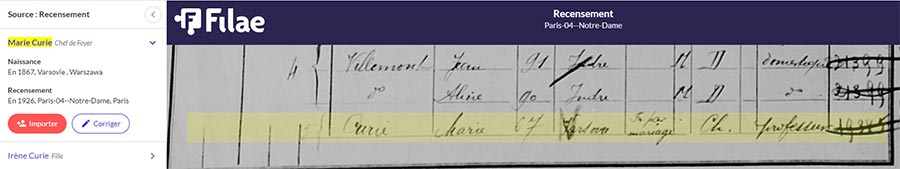 Source : Recensement
Marie Curie Chef de Foyer
Naissance
En 1867, Varsovie , Warszawa
Recensement
En 1926, Paris-04--Notre-Dame, Paris
Importer
Corriger
Irène Curie Fille
Filae
Recensement
Paris-04--Notre-Dame
4 Villemont Jean 91 Indre M D domestique
do Aline 90 Indre M D do
Curie Marie 67 Varsovie Fr par mariage Ch. professeur